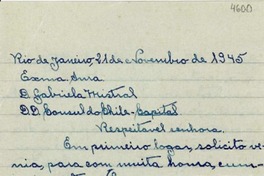 4600
Rio de Janeiro, 21 de Novembro de 1945
Exma. Snra.
D. Gabriela Mistral
DD. Consul do Chile - Capital
Respeitavel senhora.
Em primeiro logar, solicito ve-
nia, para com muita honra, cum-